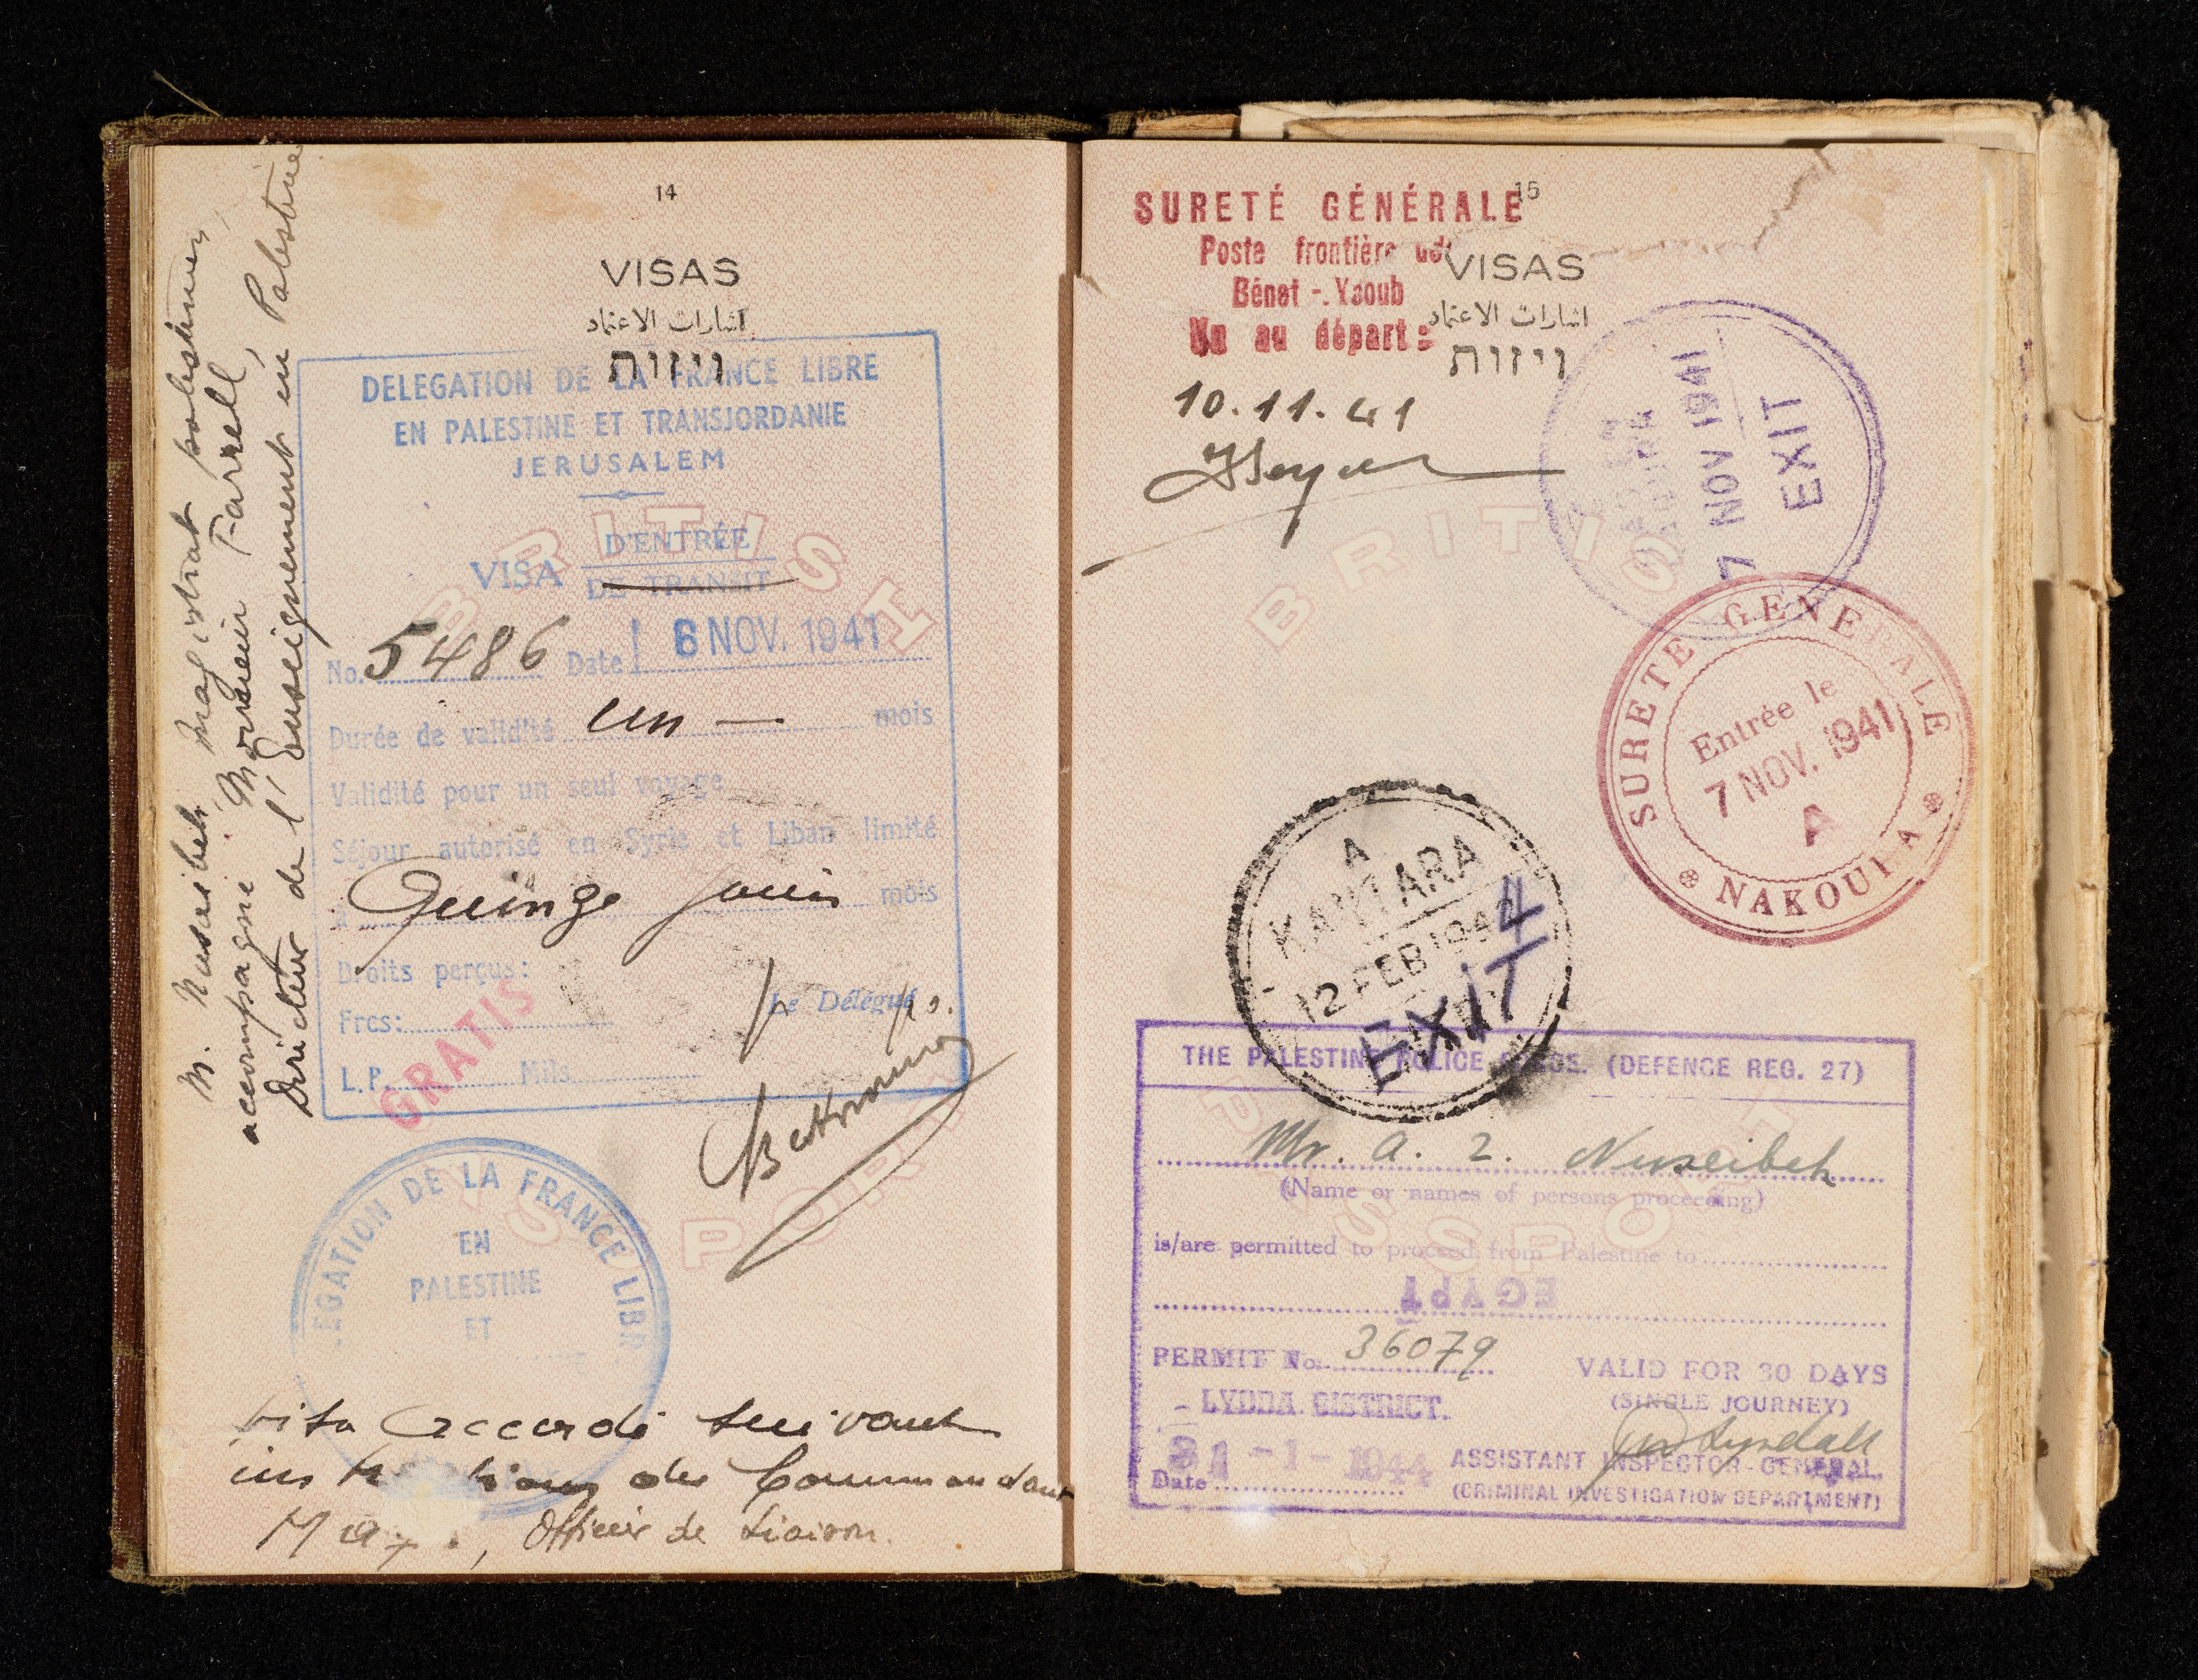 14
VISAS
اشارات الاعتماد
ויזות
DELEGATION DE LA FRANCE LIBRE
EN PALESTINE ET TRANSJORDANIE
JERUSALEM
VISA D'ENTRÉE
DE TRANSIT
No. 5486 Date 6 NOV. 1941
Durée de validité un — mois
Validité pour un seul voyage
Séjour autorisé en Syrie et Liban limité
à Quinze jours mois
Droits perçus:
Frcs:
Le Délégué
L.P. Mils
GRATIS
M. Nuseibeh, magistrat palestinien,
accompagne Monsieur Farrell,
Directeur de l'Enseignement en Palestine
DE LA FRANCE LIBR
EN
PALESTINE
ET
visa accordé suivant
du Commandant
Officier de Liaison.
BRITISH
PASSPORT
15
SURETÉ GÉNÉRALE
Poste frontière de
Bénet - Yaoub
Vu au départ :
VISAS
اشارات الاعتماد
ויזות
10.11.41
7 NOV 1941
EXIT
SURETE GENERALE
Entrée le
7 NOV. 1941
A
NAKOURA
A
KANTARA
12 FEB 1944
EXIT
THE PALESTINE POLICE (DEFENCE REG. 27)
Mr. A. Z. Nuseibeh
(Name or names of persons proceeding)
is/are permitted to proceed from Palestine to
EGYPT
PERMIT No. 36079
VALID FOR 30 DAYS
LYDDA DISTRICT.
(SINGLE JOURNEY)
31-1-1944
Date
ASSISTANT INSPECTOR-GENERAL.
(CRIMINAL INVESTIGATION DEPARTMENT)
BRITIS